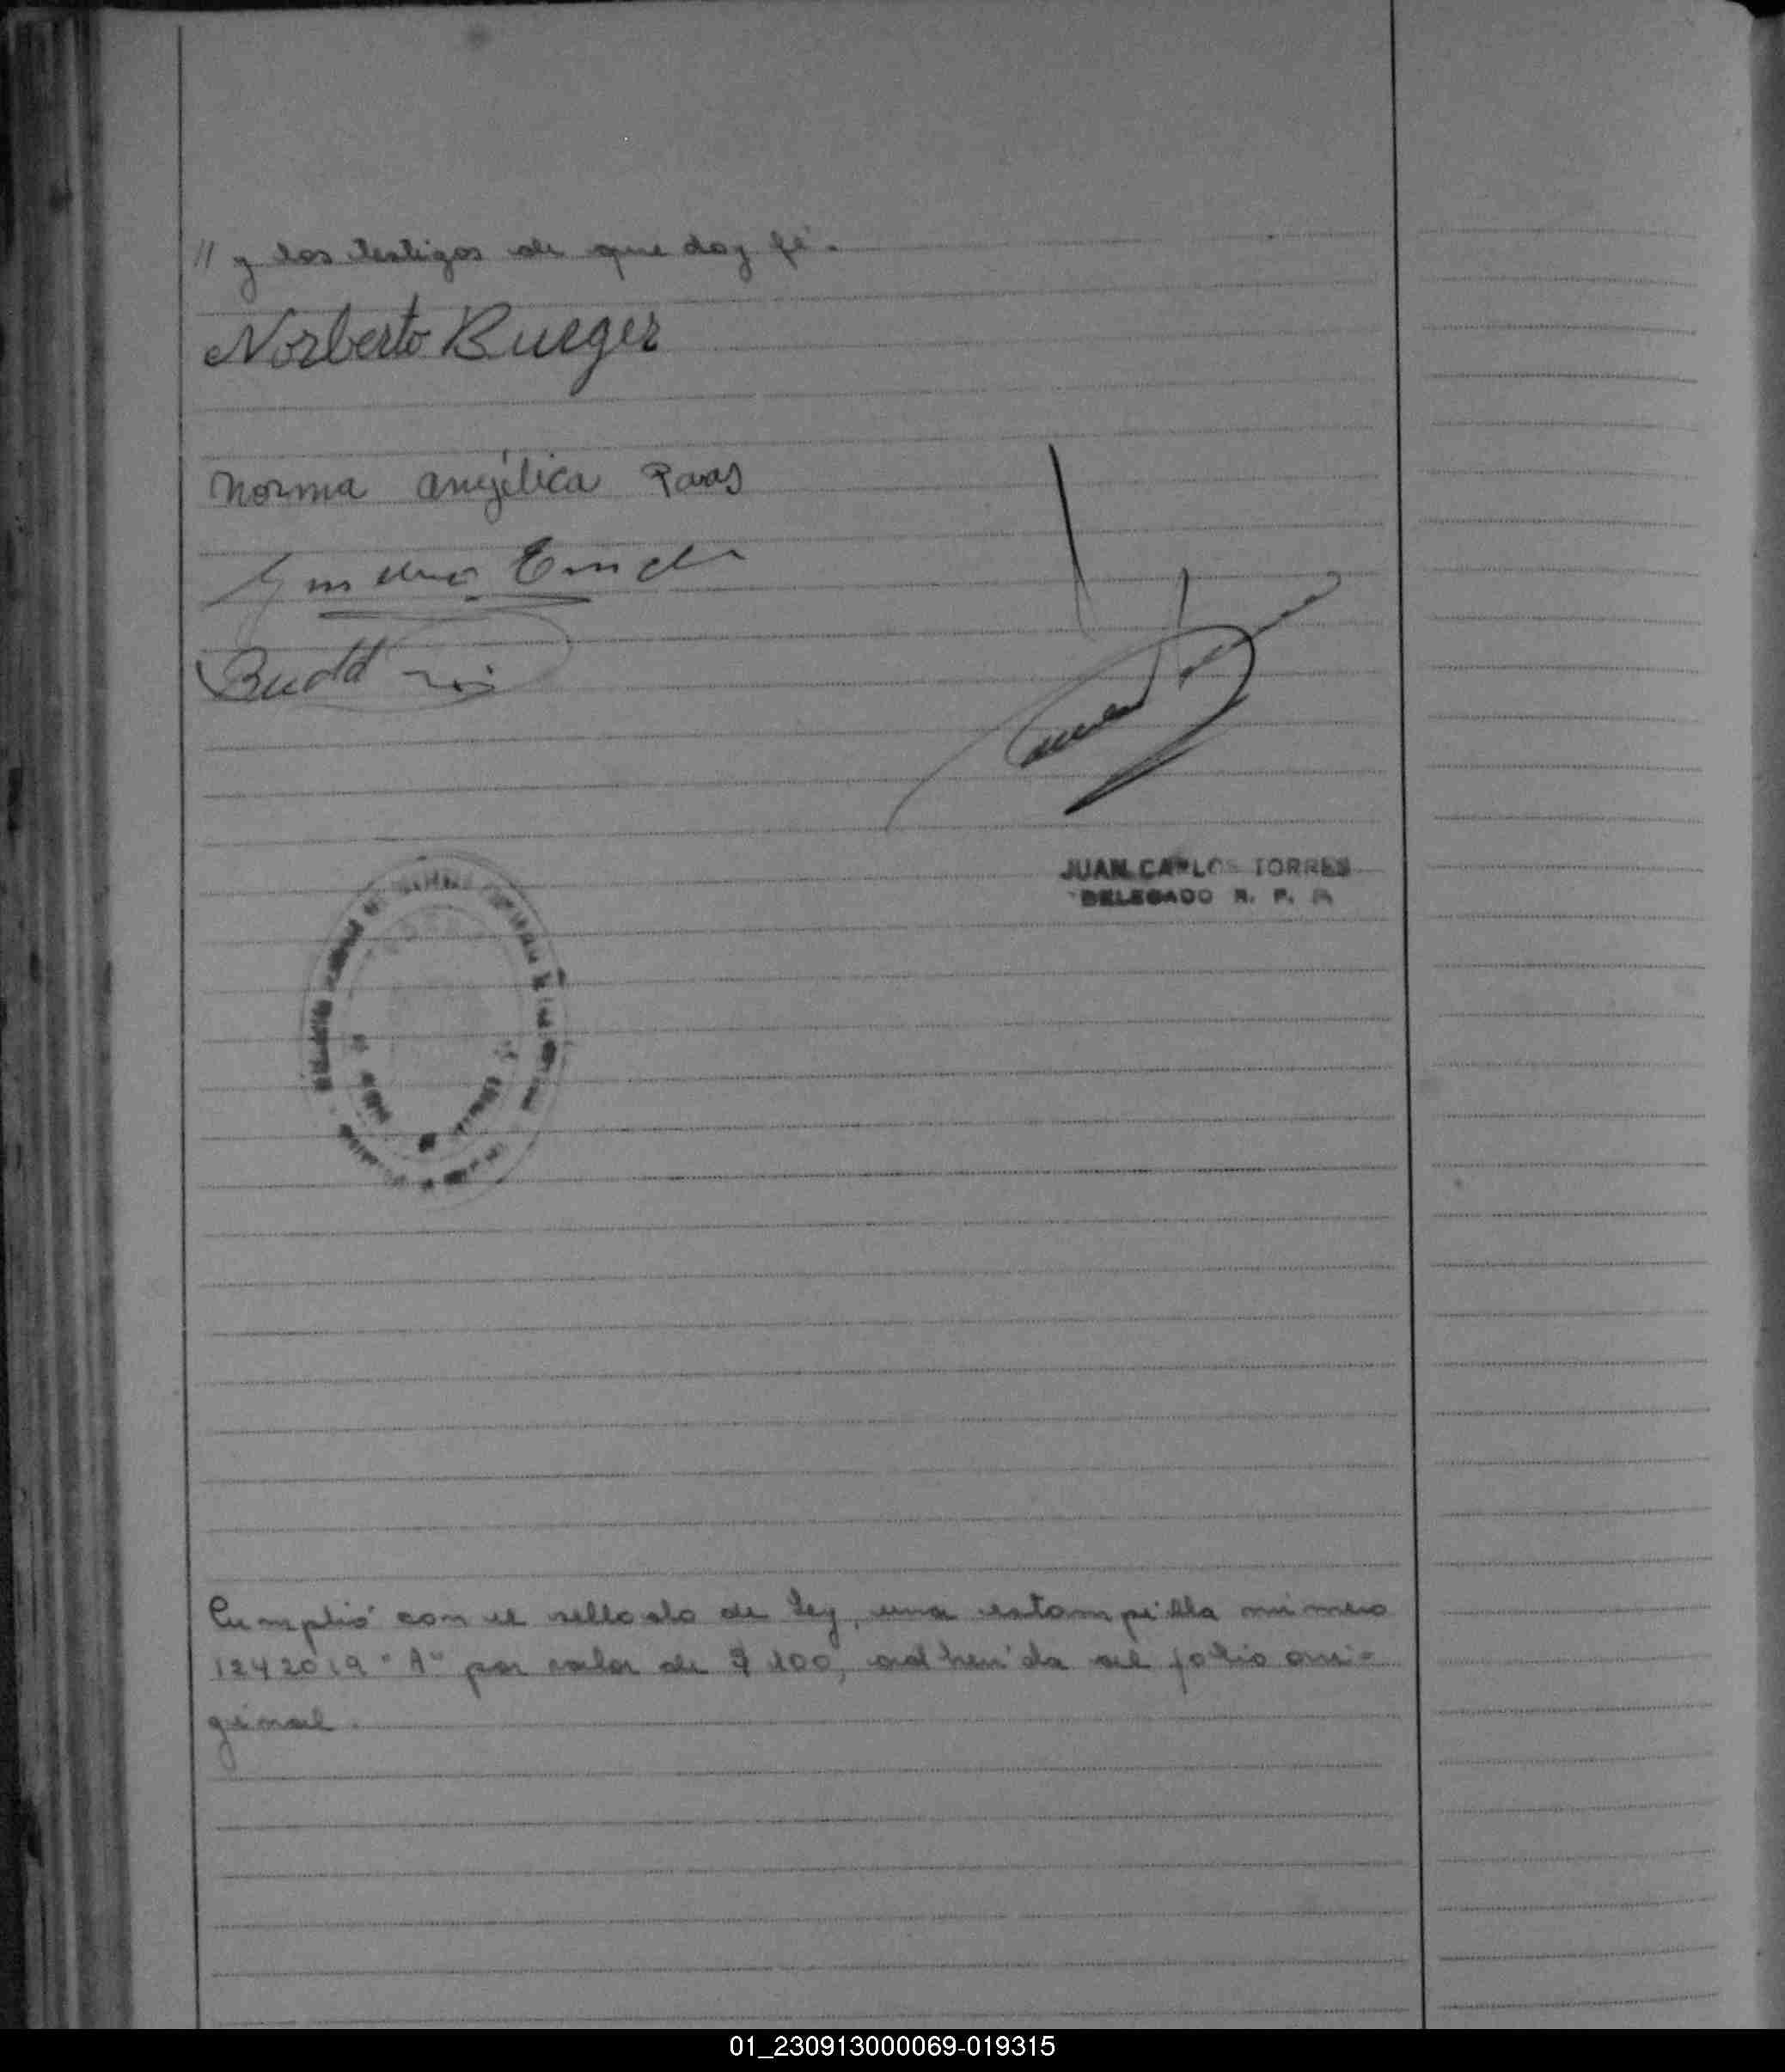 // y los testigos de que doy fé.
Norberto Burger
Norma Angélica Pavas
JUAN CARLOS TORRES
DELEGADO R. P.
Cumplió con el sellado de Ley, una estampilla número
1242019 "A" por valor de $ 100, adherida al folio ori-
ginal.
01_230913000069-019315